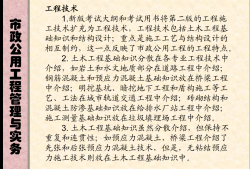 市政公用工程管理与实务
工程技术
1.新版考试大纲和考试用书将第二版的工程施
工技术扩充为工程技术。工程技术包括土木工程基
础知识和结构设计；重点是施工工艺与结构设计的
相互制约。这一点反映了市政公用工程的工程特点。
2.土木工程基础知识分散在各专业工程技术中
介绍。如岩土和水文地质部分在道路工程中介绍；
钢筋混凝土和预应力混凝土基础知识在桥梁工程
中介绍；明挖基坑、暗挖地下工程和盾构施工等工
艺、工法在城市轨道交通工程中介绍；砖砌结构和
混凝土防渗基础知识在给排水厂站工程中介绍；
施工测量基础知识在垃圾填埋场工程中介绍。
3.土木工程基础知识虽然分散介绍，但保持不
重复和连贯性；如预应力混凝土，桥梁工程介绍了
先张和后张预应力混凝土技术。但是，无粘结预应
力施工技术则放在土木工程基础知识中。